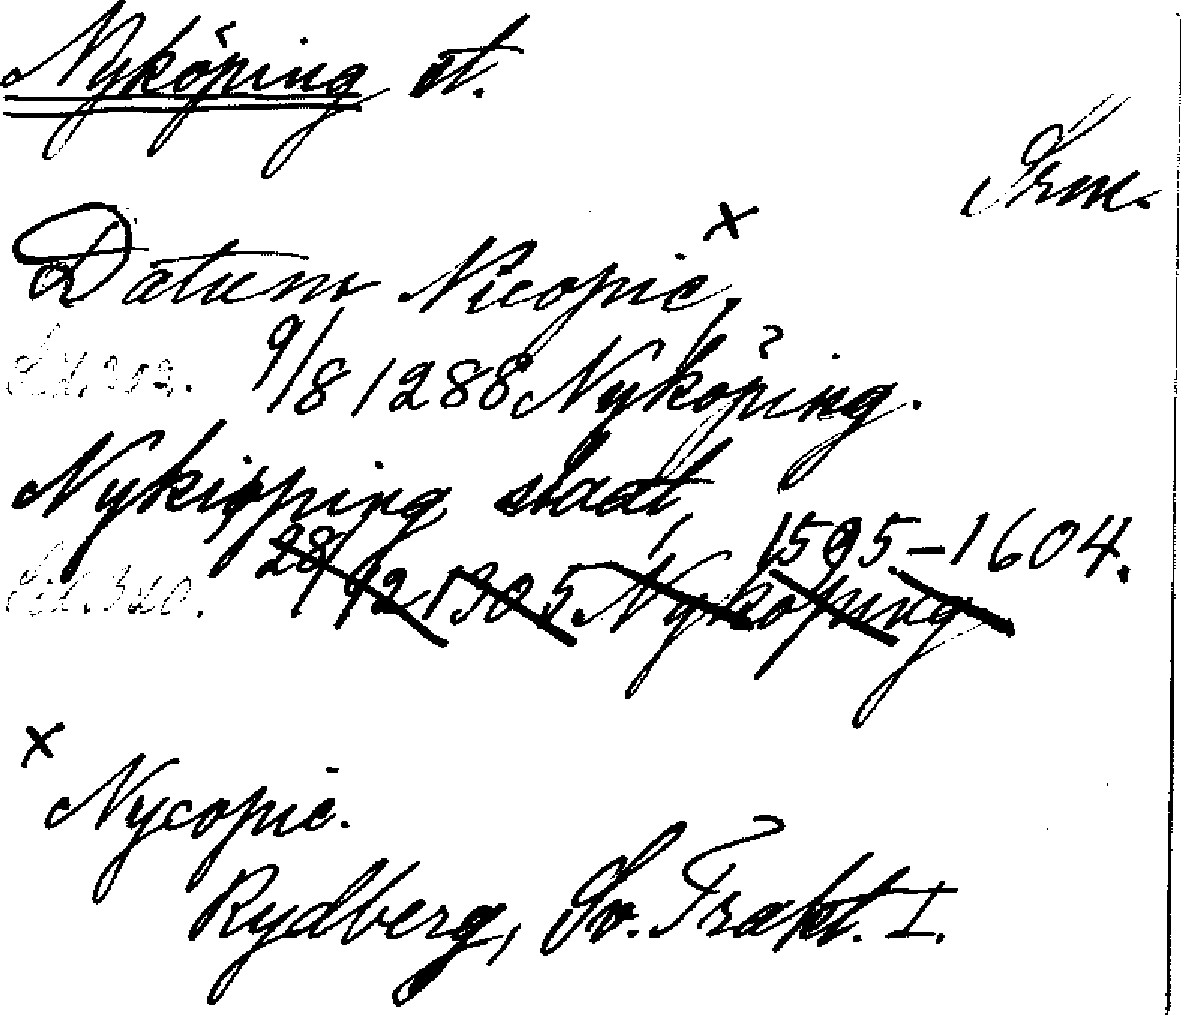 Nyköping st.
Srm.
Datum Nicopie, x
9/8 1288 Nyköping.
Nykiøping staat,
1595-1604.
28/12 1305 Nyköping
x Nycopie.
Rydberg, Sv. Trakt. I.